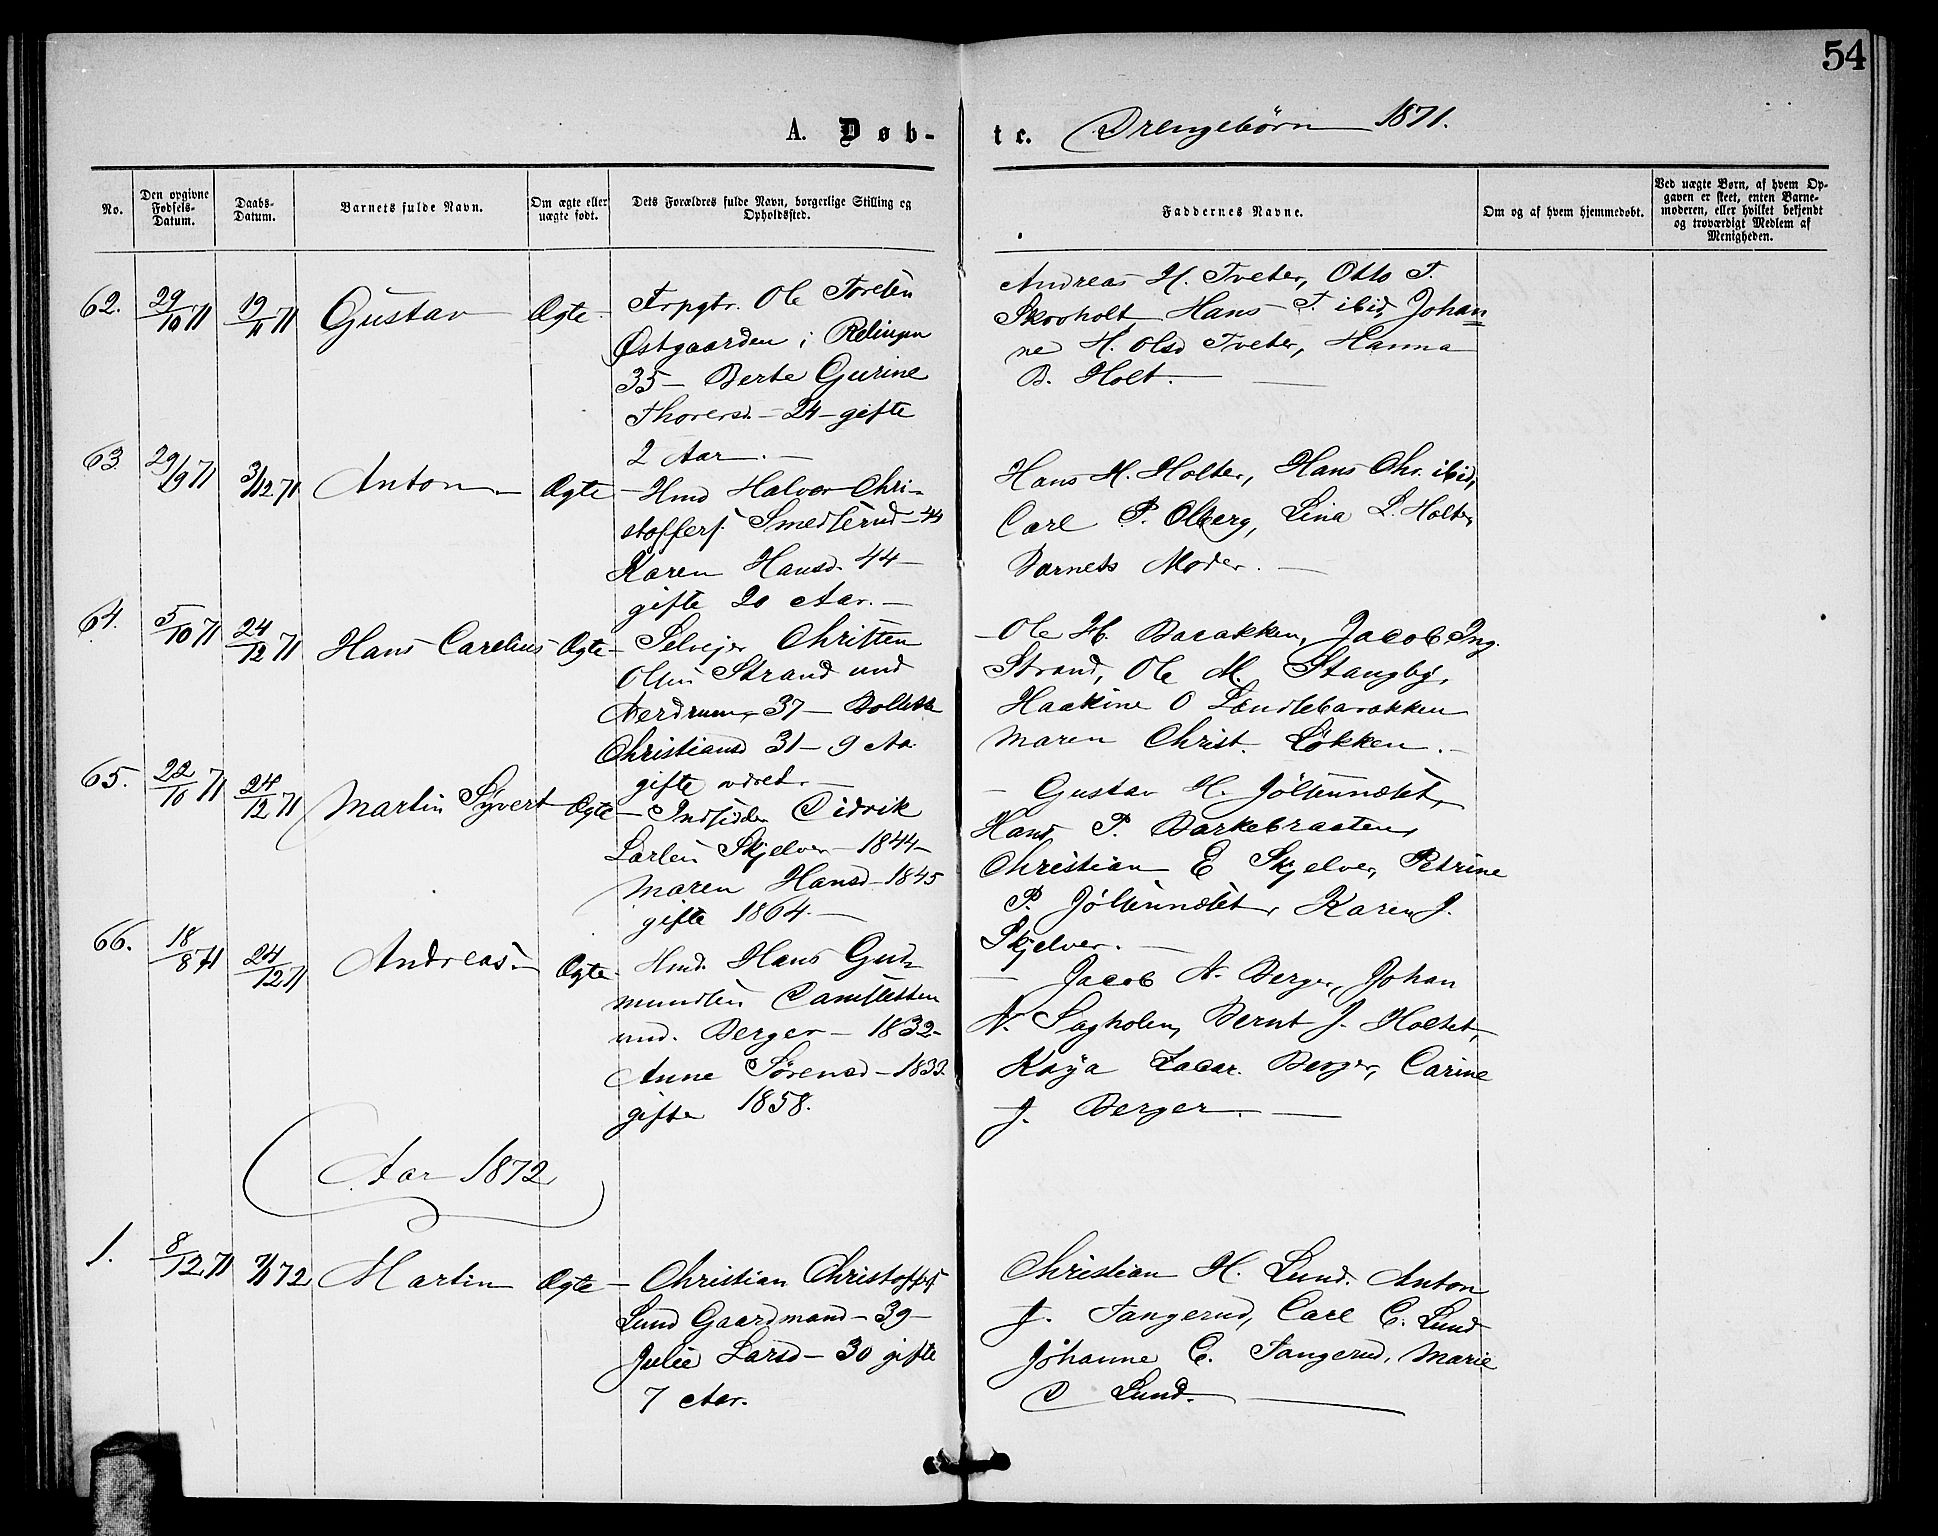 54
A. Døb-
te. Drengebørn 1871.
No.
Den opgivne
Fødsels-
Datum.
Daabs-
Datum.
Barnets fulde Navn.
Om ægte eller
uægte født.
Dets Forældres fulde Navn, borgerlige Stilling og
Opholdssted.
Faddernes Navne.
Om og af hvem hjemmedøbt.
Ved uægte Børn, af hvem Op-
gaven er skeet, enten Barne-
moderen, eller hvilket bekjendt
og troværdigt Medlem af
Menigheden.
62. 29/10 71 19/11 71 Gustav Ægte -
Frpgtr. Ole Toresen
Østgaarden i Relingen
35 - Berte Gurine
Thorersd. - 24 - gifte
2 Aar. -
Andreas H. Tveter, Otto T.
Skovholt Hans T. ibid, Johan=
ne H. Olsd Tveter, Hanna
B. Holt. -
63. 29/9 71 3/12 71 Anton - Ægte
- Hmd Halvor Chri-
stoffers. Smedserud - 44
Karen Hansd. 44 -
gifte 20 Aar. -
Hans M. Holter, Hans Chr. ibid,
Carl P. Olberg, Lina L. Holter,
Barnets Moder. -
64. 5/10 71 24/12 71 Hans Carelius Ægte -
Selvejer Christen
Olsen Strand und
Nerdrum, 37 - Bollette
Christiansd 31 - 9 Aa.
gifte været. -
- Ole H. Bacakken, Jacob Ing.
Strand, Ole M. Stangby,
Haakine O
Maren Christ. Løkken. -
65. 22/10 71 24/12 71 Martin Syvert Ægte
- Indsidder Didrik
Larsen Skjelver - 1844 -
Maren Hansd - 1845
gifte 1864. -
- Gustav H.
Hans P. Barkebraaten,
Christian E Skjelver, Petrine
P. Karen J.
Skjelver. -
66. 18/8 71 24/12 71 Andreas - Ægte -
Hmd. Hans Gud-
mundsen Damsletten
und. Berger - 1832 -
Anne Sørensd - 1833.
gifte 1858.
- Jacob N. Berger, Johan
N. Sagholen, Bernt J. Holtet,
Kaja Berger, Carine
J. Berger. -
Aar 1872
1. 8/12 71 7/1 72 Martin Ægte
- Christian Christoffers
Lund Gaardmand - 39 -
Julie Larsd - 30 gifte
7 Aar.
Christian H. Lund. Anton
J. Tangerud, Carl C. Lund
Johanne C. Tangerud, Marie
D Lund. -